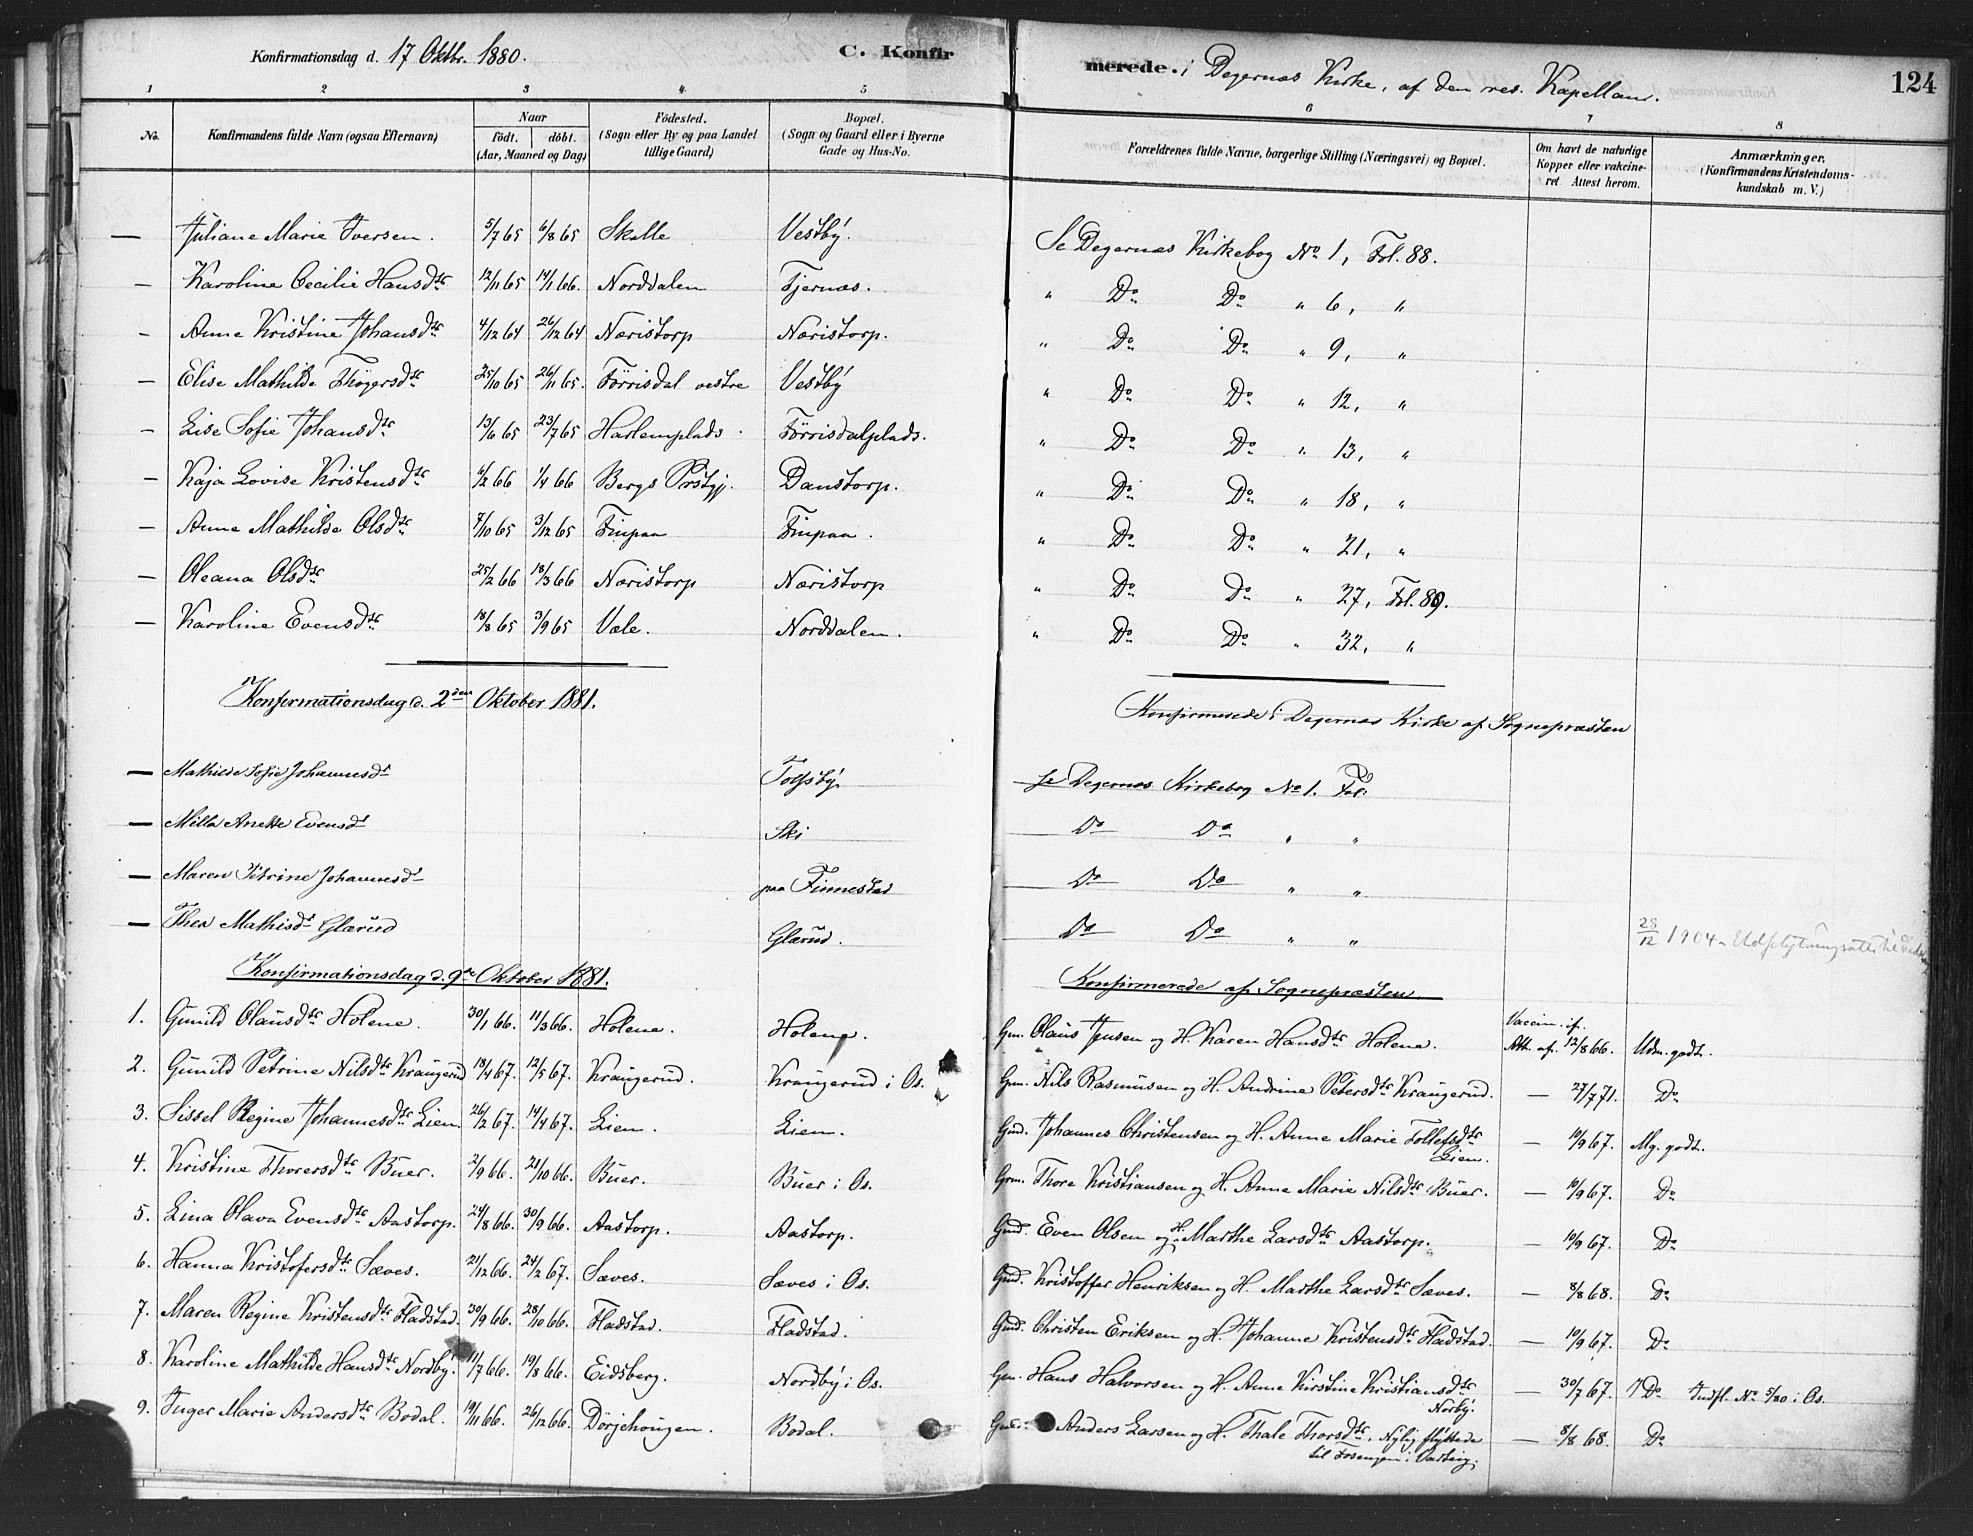 Konfirmationsdag d. 17 Oktbr. 1880. C. Konfirmerede. i Degernæs Kirke, af den res. Kapellan. 124
1 2 3 4 5 6 7 8
No. Konfirmandens fulde Navn (ogsaa Efternavn) Naar født. døbt. (Aar, Maaned og Dag) Fødested. (Sogn eller By og paa Landet tillige Gaard) Bopæl. (Sogn og Gaard eller i Byerne Gade og Hus-No. Forældrenes fulde Navne, borgerlige Stilling (Næringsvei) og Bopæl. Om havt de naturlige Kopper eller vakcineret. Attest herom. Anmærkninger. (Konfirmandens Kristendomskundskab m. V.)
— Juliane Marie Iversen. 5/7 65 6/8 65 Skolle Vestby. Se Degernæs Kirkebog No 1, Fol. 88.
— Karoline Cecilie Hansdtr 12/11 65 14/1 66. Norddalen Tjernæs. " Do Do " 6, "
— Anne Kristine Johansdtr 4/12 64 26/12 64 Næristorp Næristorp. " Do Do " 9, "
— Elise Mathilde Thøgersdtr 25/10 65 26/11 65. Førrisdal vestre Vestby " Do Do " 12, "
— Lise Sofie Johansdtr 13/6 65 23/7 65 Harlemplads Førrisdalplads. " Do Do " 13, "
— Kaja Lovise Kristensdtr 6/2 66 1/4 66 Bergs Prstgj. Danstorp. " Do Do " 18, "
— Anne Mathilde Olsdtr 7/10 65 3/12 65 Finpaa Finpaa. " Do Do " 21, "
— Oleana Olsdtr 25/2 66 18/3 66 Næristorp Næristorp " Do Do " 27, Fol. 89.
— Karoline Evensdtr 18/8 65 3/9 65 Vale. Norddalen. " Do Do " 32, "
Konfirmationsdag d. 2den Oktober 1881. Konfirmerede i Degernæs Kirke af Sognepræsten
— Mathilde Sofie Johannesdt Tolfsby Se Degernæs Kirkebog No 1. Fol.
— Milla Anette Evensdt Ski Do Do " "
— Maren Petrine Johannesdt paa Finnestad Do Do " "
— Thea Mathisdt Glærud Glærud. Do Do " " 28/12 1904 – Udflytningsattest til
Konfirmationsdag d. 9de Oktober 1881. Konfirmerede af Sognepræsten
1. Gunild Olausdtr Holene. 30/1 66. 11/3 66. Holene. Holene. Gm. Olaus Jensen og H. Karen Hansdtr Holene. Vaccin. if. Att. af. 12/8 66. Udm. godt.
2. Gunild Petrine Nilsdtr Krangerud 18/4 67. 12/5 67. Krangerud. Krangerud i Os. Gm. Nils Rasmusen og H. Andrine Petersdtr Krangerud. — 27/7 71. Do
3. Sissel Regine Johannesdtr Lien. 26/2 67. 14/4 67. Lien. Lien. Gmd. Johannes Christensen og H. Anne Marie Tollefsdtr Lien. — 10/9 67. Mg. godt.
4. Kristine Thorersdtr Buer. 2/9 66. 21/10 66. Buer. Buer i Os. Grm. Thore Kristiansen og H. Anne Marie Nilsdtr Buer. — 10/9 67. Do
5. Lina Olava Evensdtr Aastorp. 24/8 66. 30/9 66. Aastorp. Aastorp. Gmd. Even Olsen og H. Marthe Larsdtr Aastorp. — 10/9 67. Do
6. Hanna Kristofersdtr Sæves. 21/12 66. 24/2 67. Sæves. Sæves i Os. Gmd. Kristoffer Henriksen og H. Marthe Larsdtr Sæves. — 8/8 68. Do
7. Maren Regine Kristensdtr Fladstad. 30/9 66. 28/10 66. Fladstad. Fladstad. Gmd. Christen Eriksen og H. Johanne Kristensdtr Fladstad. — 10/9 67. Do
8. Karoline Mathilde Hansdtr Nordby. 11/7 66. 19/8 66. Eidsberg. Nordby i Os. Gm. Hans Halvorsen og H. Anne Kirstine Kristiansdtr Norby. — 30/7 67. Do Indfl. No 5/80 i Os.
9. Inger Marie Andersdtr Bodal. 19/11 66. 26/12 66. Dørjehougen. Bodal. Anders Larsen og H. Thale Thorsdtr. Nylig flyttede til Fosengen i Varteig. — 8/8 68. Do